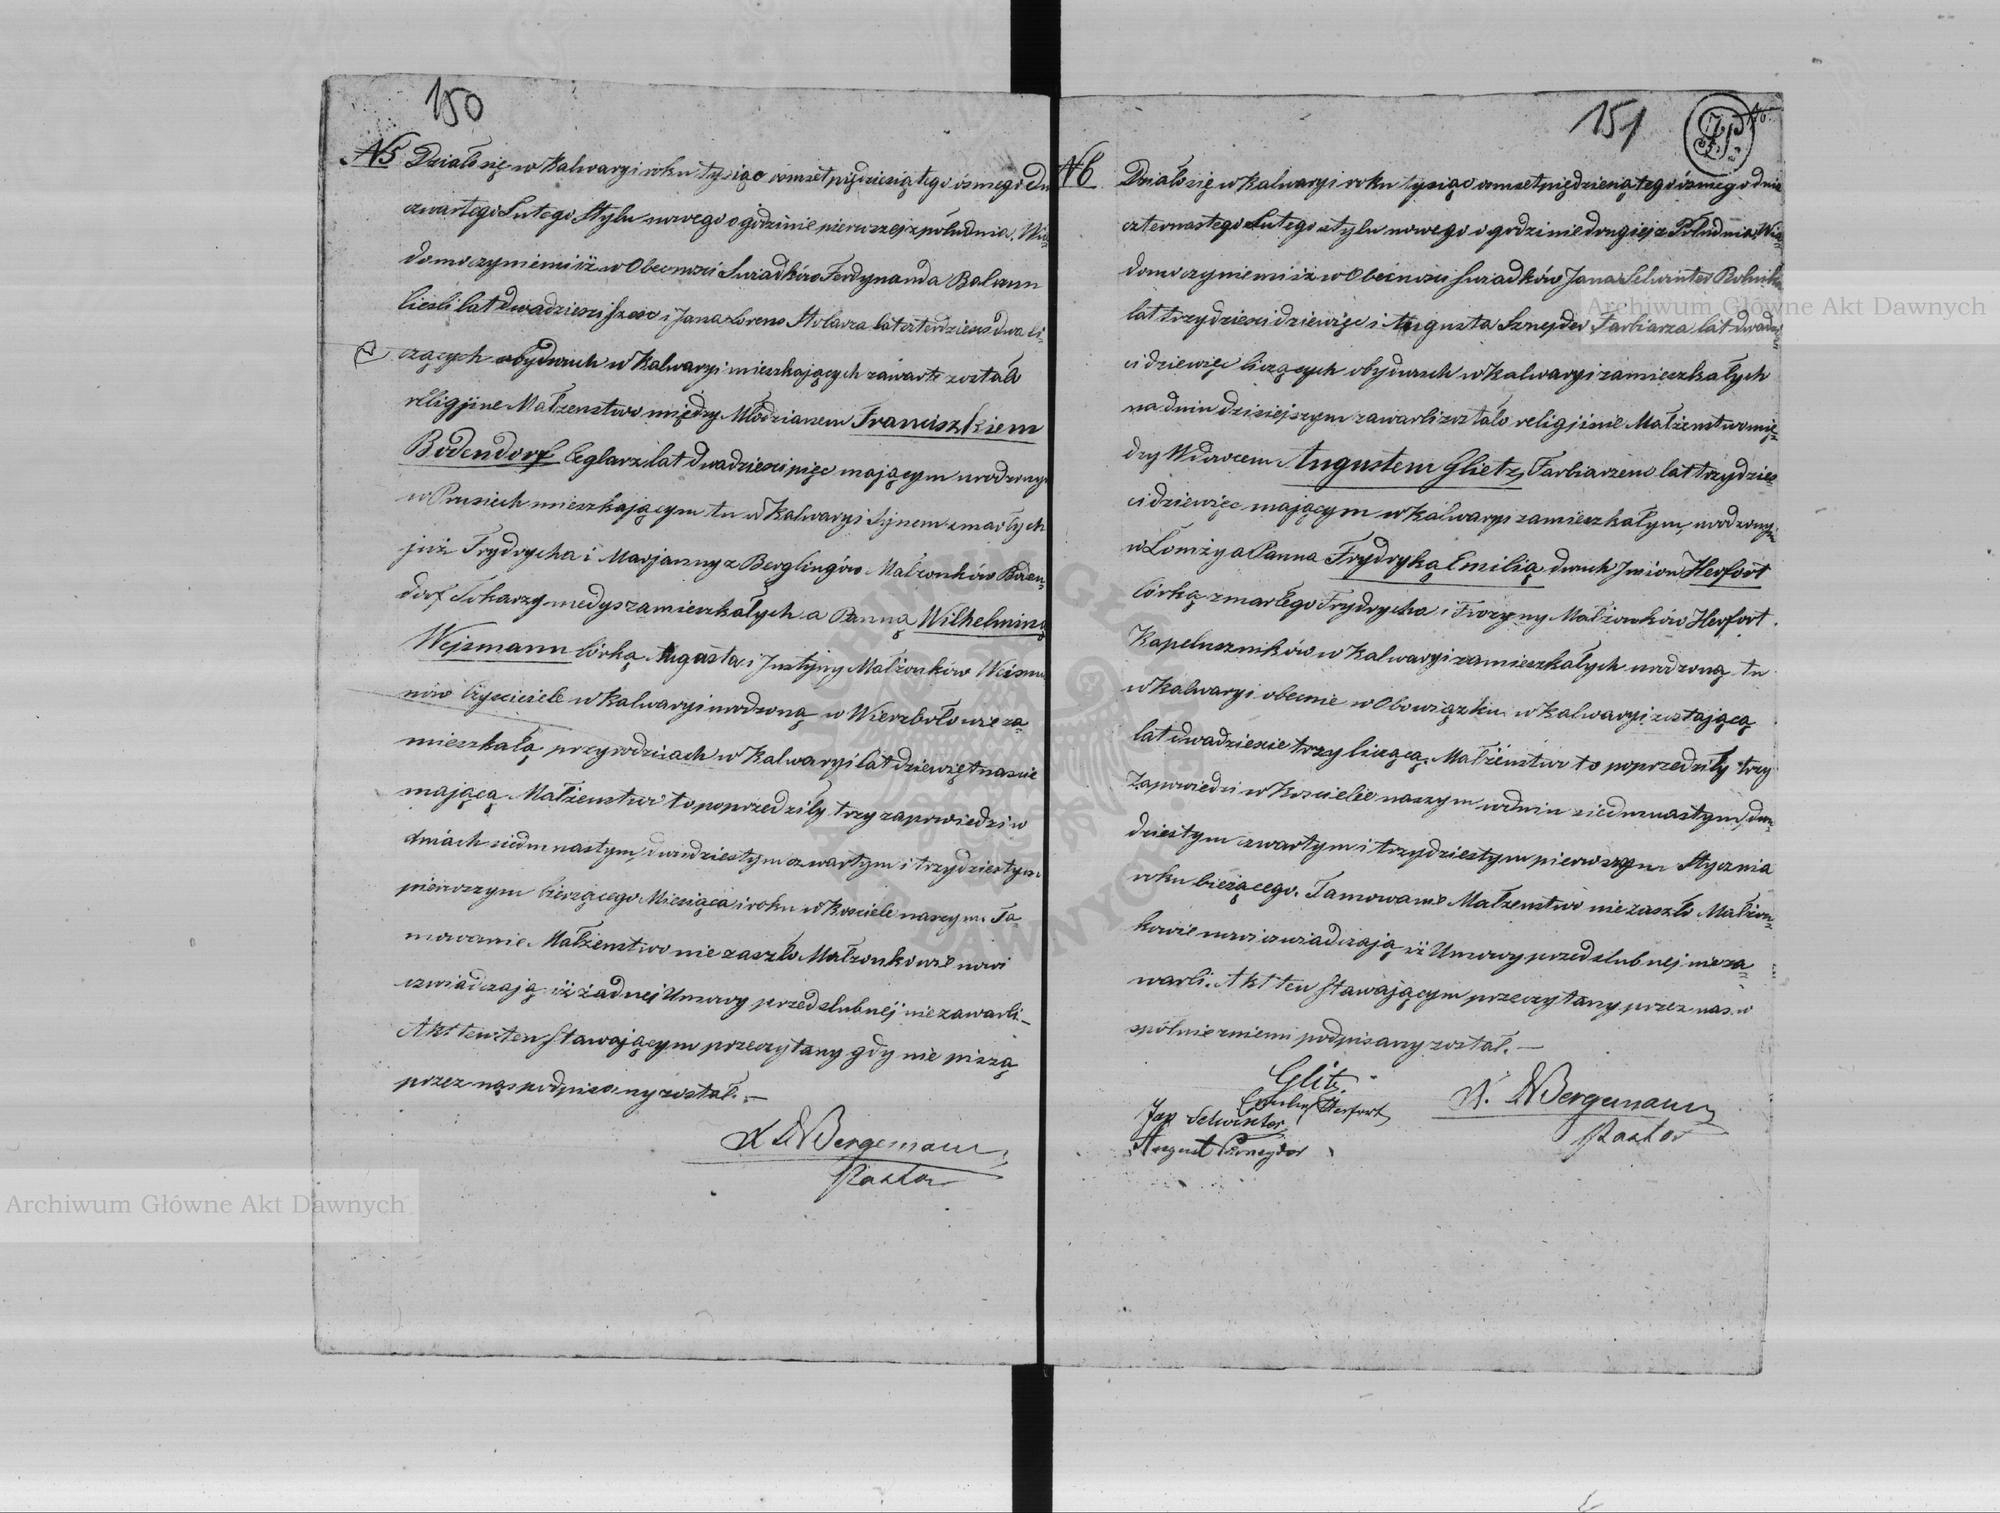 150
N5 Działo się w Kalwaryi roku tysiąc osmset piędziesiątego ósmego dnia
czwartego Lutego Stylu nowego o godzinie pierwszej z południa, Wia-
domo czyniemi iż w Obecnosci Swiadków Ferdynanda Balcum
Cieśli lat dwadziesci szesc i Jana Lorenc Stolarza lat czterdziesci dwa li-
czących obydwuch w Kalwaryi mieszkających zawarte zostało
religijne Małżenstwo między Młodzianem Franciszkiem
Bodendorf Ceglarz lat dwadziesci pięc mającym urodzonym
w Prusiech mieszkającym tu w Kalwaryi Synem zmarłych
już Frydrycha i Marjanny z Berglingów Małżonków Boden-
dorf Tokarzy niedys zamieszkałych a Panną Wilhelminą
Wejsmann Córką Augusta i Justyny Małżonków Weisma-
nów Czysciciele w Kalwaryi urodzoną w Wierzbołowie za-
mieszkałą przy rodzicach w Kalwaryi lat dziewiętnascie
mającą. Małżenstwo to poprzedziły trzy zapowiedzi w
dniach siedmnastym, dwudziestym czwartym i trzydziestym
pierwszym bierzącego Miesiąca i roku w Kosciele naszym. Ta-
mowanie Małżenstwo nie zaszło. Małżonkowie nowi
oswiadczają iż żadnej Umowy przedslubnej nie zawarli—
Akt ten ten Stawającym przeczytany gdy nie piszą
przez nas podpisany został.—
K L W Bergemann
Pastor
151
N6 Działo się w Kalwaryi roku tysiąc osmset piędziesiątego ósmego dnia
czternastego Lutego stylu nowego o godzinie drugiej z Południa, Wia-
domo czyniemi iż w Obecnosci Swiadków Jana Schwinter Rolnika
lat trzydziesci dziewięc i Augusta Sznejder Farbiarza lat dwadzie-
ci dziewięc liczących obydwuch w Kalwaryi zamieszkałych
na dniu dzisiejszym zawarli zostało religijnie Małżenstwo mię-
dzy Wdowcem Augustem Glietz, Farbiarzem lat trzydzies-
ci dziewięc mającym w Kalwaryi zamieszkałym, urodzonym
w Łomży a Panna Frydryką Emilią dwuch Imion Herfort
Córką zmarłego Frydrycha i Frozyny Małżonków Herfort.
Kapeluszników w Kalwaryi zamieszkałych urodzoną tu
w Kalwaryi obecnie w Obowiązku w Kalwaryi zostającą
lat dwadziescie trzy liczącą. Małżenstwo to poprzedziły trzy
Zapowiedzi w Kosciele naszym w dniu siedmnastym, dwu-
dziestym czwartym i trzydziestym pierwszym Stycznia
roku bieżącego. Tamowanie Małżenstwo nie zaszło Małżon-
kowie nowi oswiadczają iż Umowy przedslubnej nie za-
warli. Akt ten Stawającym przeczytany przez nas w
spólnie zniemi podpisany został.—
Glitz
Herfort
Jan Schwinter
August Sznejder
K. L W Bergemann
Pastor
Archiwum Główne Akt Dawnych
Archiwum Główne Akt Dawnych